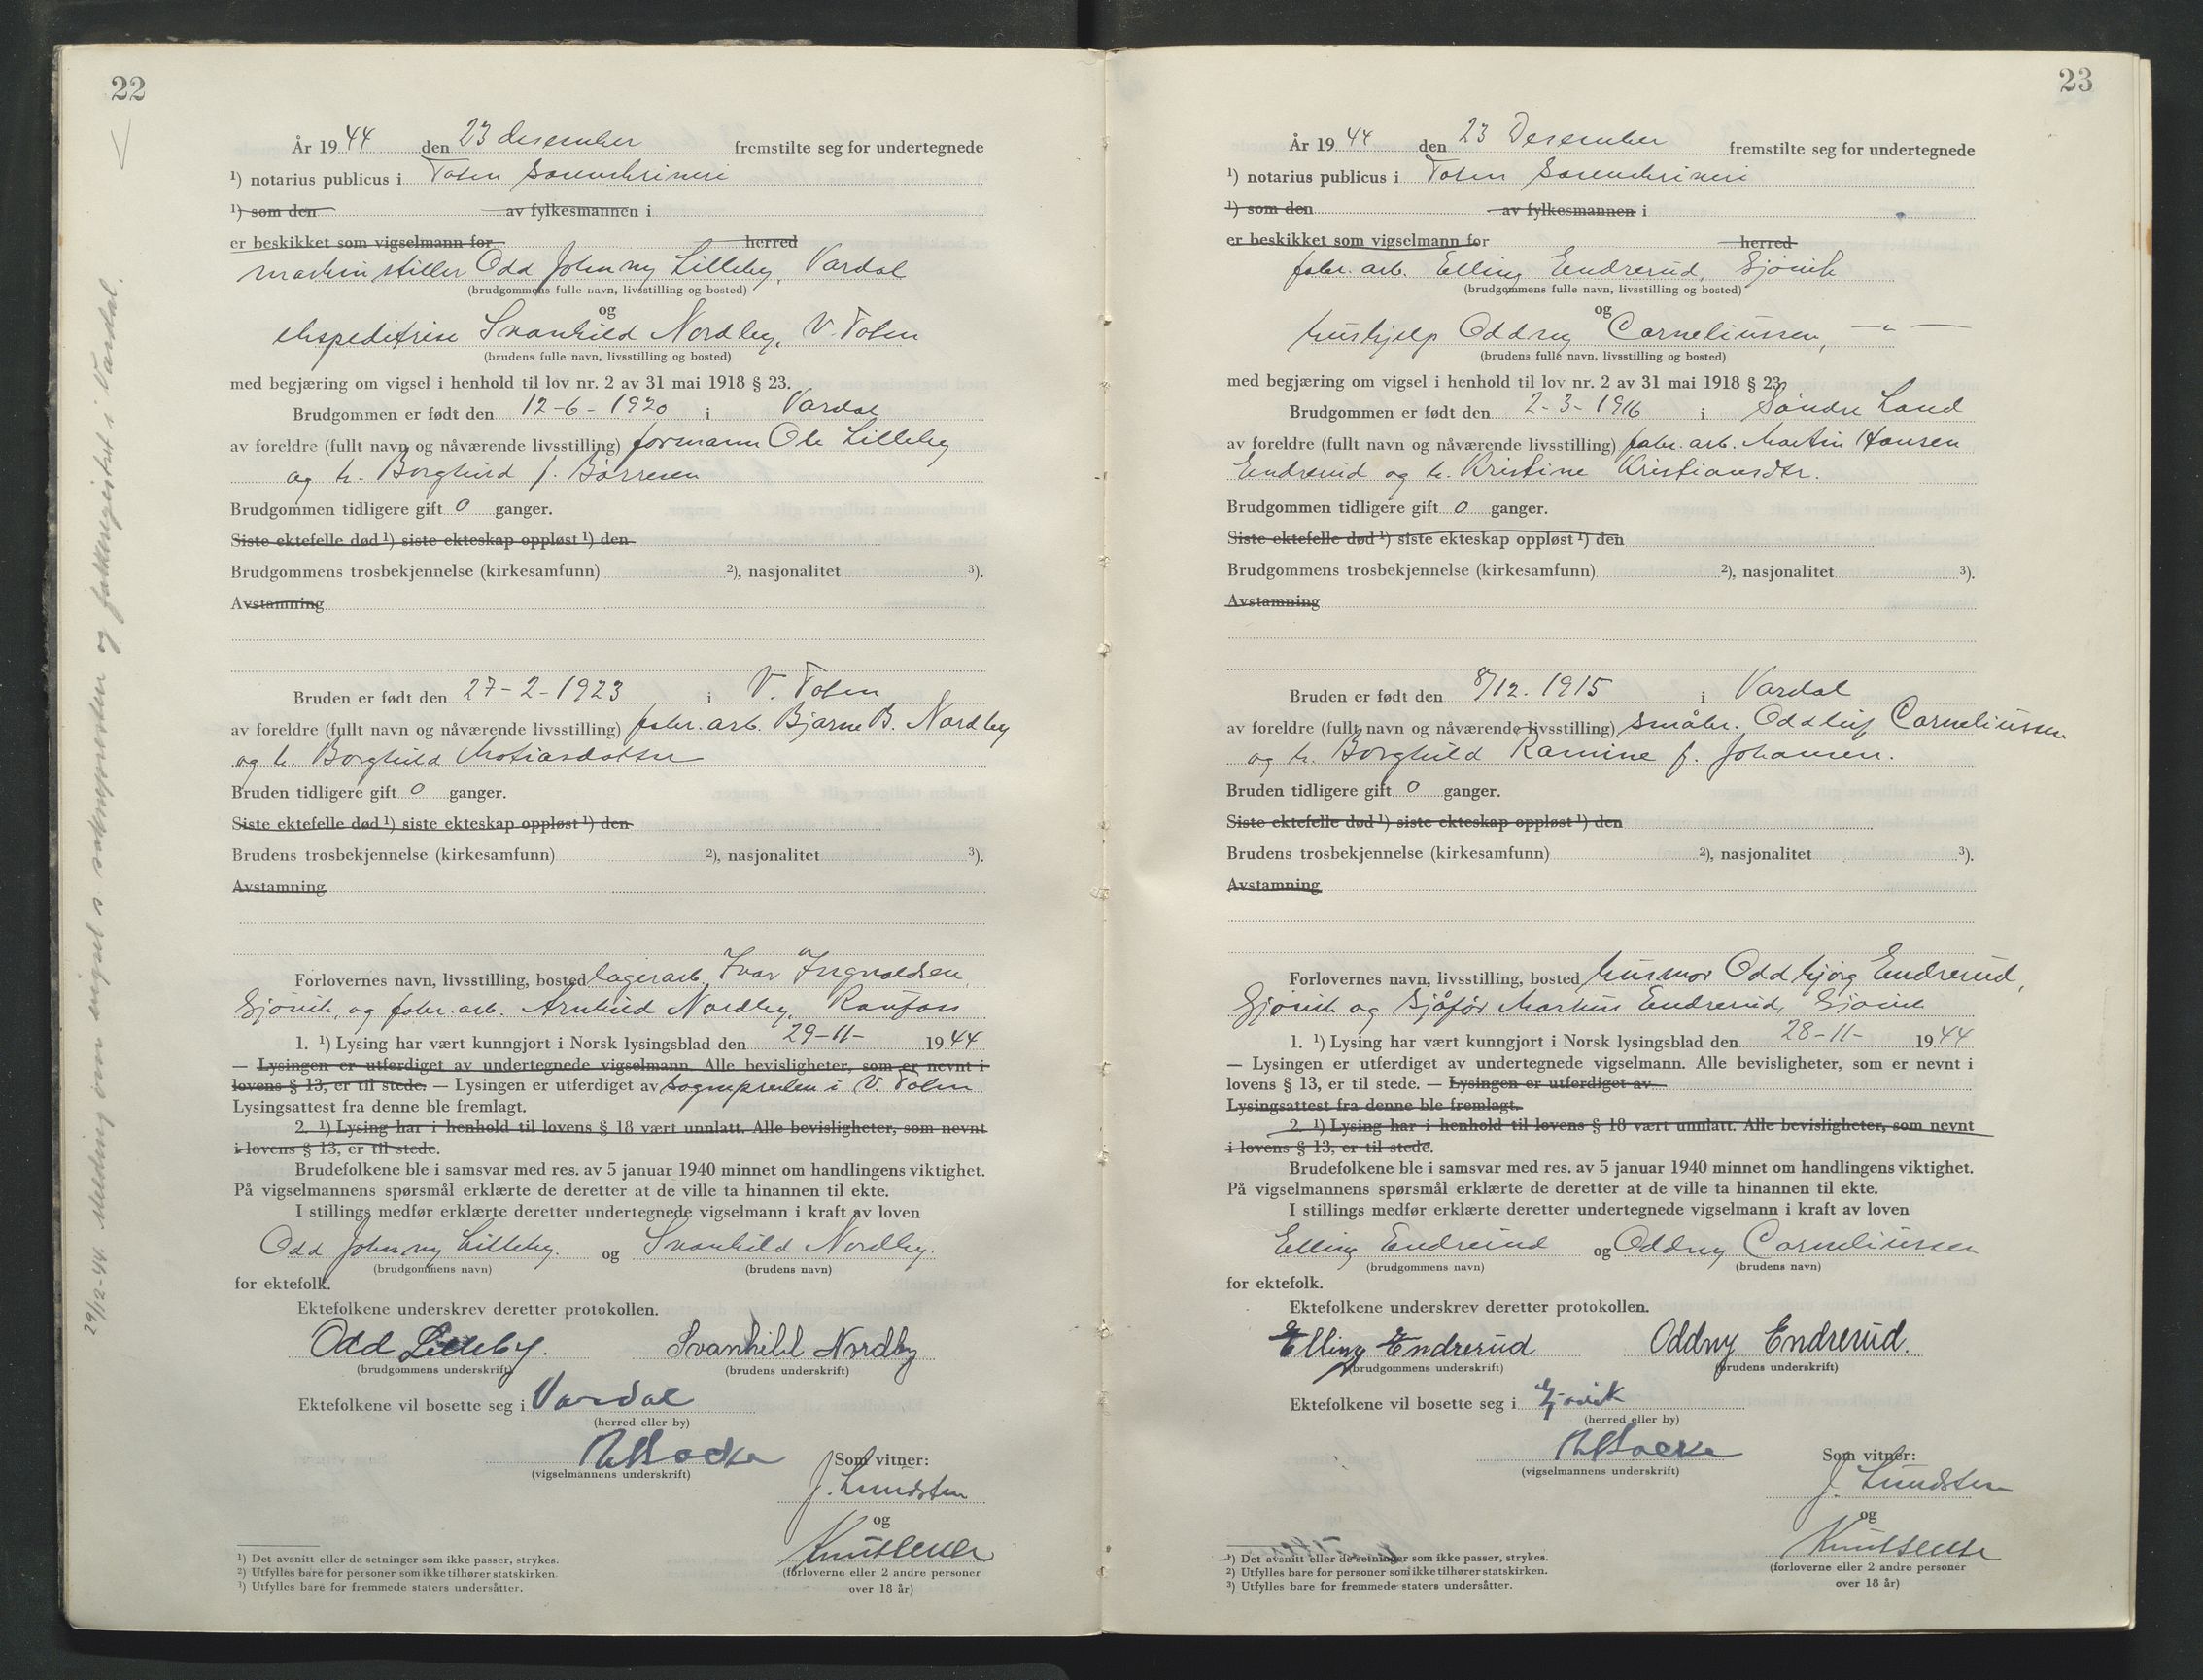 22
År 1944 den 23 desember fremstilte seg for undertegnede
¹) notarius publicus i Toten Sorenskriveri
¹) som den av fylkesmannen i
er beskikket som vigselmann for herred
maskinstiller Odd Johnny Lilleby, Vardal
(brudgommens fulle navn, livsstilling og bosted)
og
ekspeditrise Svanhild Nordby, V. Toten
(brudens fulle navn, livsstilling og bosted)
med begjæring om vigsel i henhold til lov nr. 2 av 31 mai 1918 § 23.
Brudgommen er født den 12-6-1920 i Vardal
av foreldre (fullt navn og nåværende livsstilling) formann Ole Lilleby
og h. Borghild f. Børresen
Brudgommen tidligere gift 0 ganger.
Siste ektefelle død ¹) siste ekteskap oppløst ¹) den
Brudgommens trosbekjennelse (kirkesamfunn) ²), nasjonalitet ³).
Avstamning
Bruden er født den 27-2-1923 i V. Toten
av foreldre (fullt navn og nåværende livsstilling) fabr. arb. Bjarne B. Nordby
og h. Borghild Matiasdatter
Bruden tidligere gift 0 ganger.
Siste ektefelle død ¹) siste ekteskap oppløst ¹) den
Brudens trosbekjennelse (kirkesamfunn) ²), nasjonalitet ³).
Avstamning
Forlovernes navn, livsstilling, bosted lagerarb. Ivar Ingvaldsen,
Gjøvik, og fabr. arb. Arnhild Nordby, Raufoss
1. ¹) Lysing har vært kunngjort i Norsk lysingsblad den 29-11- 1944
— Lysingen er utferdiget av undertegnede vigselmann. Alle bevisligheter, som er nevnt i
lovens § 13, er til stede. — Lysingen er utferdiget av sognepresten i V. Toten
Lysingsattest fra denne ble fremlagt.
2. ¹) Lysing har i henhold til lovens § 18 vært unnlatt. Alle bevisligheter, som nevnt
i lovens § 13, er til stede.
Brudefolkene ble i samsvar med res. av 5 januar 1940 minnet om handlingens viktighet.
På vigselmannens spørsmål erklærte de deretter at de ville ta hinannen til ekte.
I stillings medfør erklærte deretter undertegnede vigselmann i kraft av loven
Odd Johnny Lilleby. og Svanhild Nordby.
(brudgommens navn) (brudens navn)
for ektefolk.
Ektefolkene underskrev deretter protokollen.
Odd Lilleby. Svanhild Nordby
(brudgommens underskrift) (brudens underskrift)
Ektefolkene vil bosette seg i Vardal
(herred eller by)
Som vitner:
(vigselmannens underskrift)
J. Lundsten
og
(forloverne eller 2 andre personer
over 18 år)
¹) Det avsnitt eller de setninger som ikke passer, strykes.
²) Utfylles bare for personer som ikke tilhører statskirken.
³) Utfylles bare for fremmede staters undersåtter.
29/12-44. Melding om vigsel s soknepresten og folkeregistret i Vardal.
23
År 1944 den 23 Desember fremstilte seg for undertegnede
¹) notarius publicus i Toten Sorenskriveri
¹) som den av fylkesmannen i
er beskikket som vigselmann for herred
fabr. arb. Elling Endrerud, Gjøvik
(brudgommens fulle navn, livsstilling og bosted)
og
hushjelp Oddny Corneliussen, — " —
(brudens fulle navn, livsstilling og bosted)
med begjæring om vigsel i henhold til lov nr. 2 av 31 mai 1918 § 23.
Brudgommen er født den 2-3-1916 i Søndre Land
av foreldre (fullt navn og nåværende livsstilling) fabr. arb. Martin Hansen
Endrerud og h. Kristine Kristiansdtr.
Brudgommen tidligere gift 0 ganger.
Siste ektefelle død ¹) siste ekteskap oppløst ¹) den
Brudgommens trosbekjennelse (kirkesamfunn) ²), nasjonalitet ³).
Avstamning
Bruden er født den 8/12. 1915 i Vardal
av foreldre (fullt navn og nåværende livsstilling) småbr. Oddleif Corneliussen
og h. Borghild Ramine f. Johansen.
Bruden tidligere gift 0 ganger.
Siste ektefelle død ¹) siste ekteskap oppløst ¹) den
Brudens trosbekjennelse (kirkesamfunn) ²), nasjonalitet ³).
Avstamning
Forlovernes navn, livsstilling, bosted husmor Oddbjørg Endrerud,
Gjøvik og sjåfør Markus Endrerud, Gjøvik
1. ¹) Lysing har vært kunngjort i Norsk lysingsblad den 28-11- 1944
— Lysingen er utferdiget av undertegnede vigselmann. Alle bevisligheter, som er nevnt i
lovens § 13, er til stede. — Lysingen er utferdiget av
Lysingsattest fra denne ble fremlagt.
2. ¹) Lysing har i henhold til lovens § 18 vært unnlatt. Alle bevisligheter, som nevnt
i lovens § 13, er til stede.
Brudefolkene ble i samsvar med res. av 5 januar 1940 minnet om handlingens viktighet.
På vigselmannens spørsmål erklærte de deretter at de ville ta hinannen til ekte.
I stillings medfør erklærte deretter undertegnede vigselmann i kraft av loven
Elling Endrerud og Oddny Corneliussen
(brudgommens navn) (brudens navn)
for ektefolk.
Ektefolkene underskrev deretter protokollen.
Elling Endrerud Oddny Endrerud.
(brudgommens underskrift) (brudens underskrift)
Ektefolkene vil bosette seg i Gjøvik
(herred eller by)
Som vitner:
(vigselmannens underskrift)
J. Lundsten
og
(forloverne eller 2 andre personer
over 18 år)
¹) Det avsnitt eller de setninger som ikke passer, strykes.
²) Utfylles bare for personer som ikke tilhører statskirken.
³) Utfylles bare for fremmede staters undersåtter.